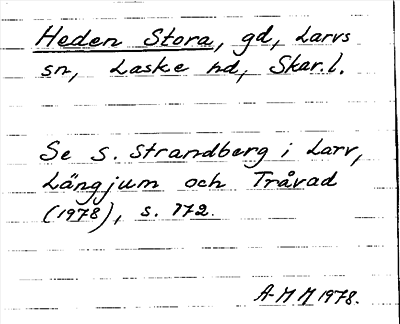 Heden Stora, gd, Larvs
sn, Laske hd, Skar.l.
Se S. Strandberg i Larv,
Längjum och Tråvad
(1978), s. 172.
A-M M 1978.